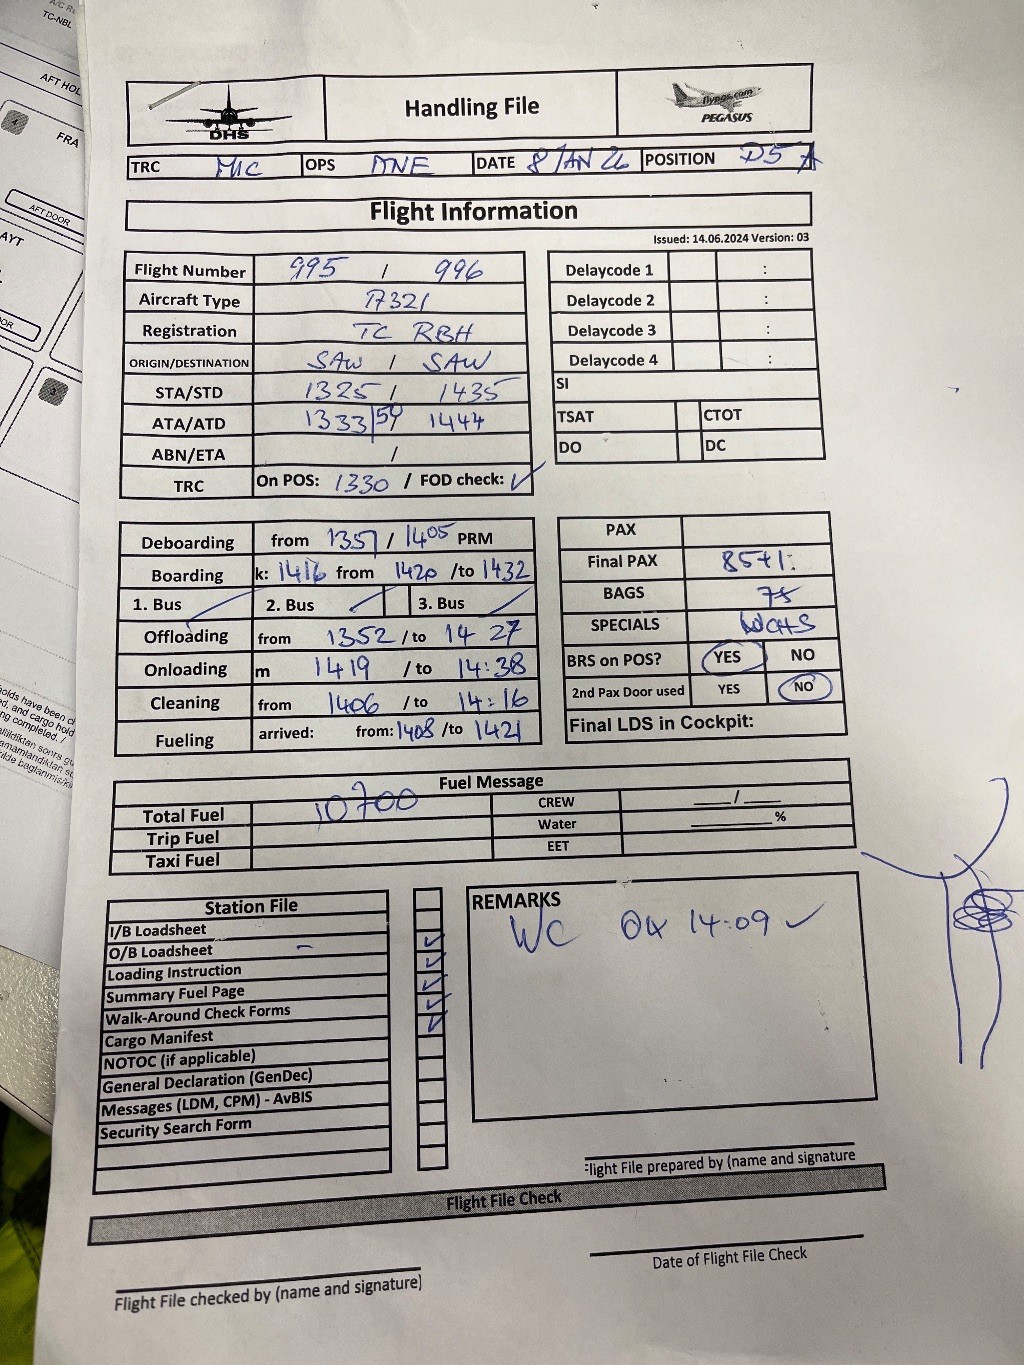 A/C R
TC-NBL
AFT HOL
FRA
AFT DOOR
AYT
OOR
olds have been cl
d, and cargo hold
ng completed. /
DHS
Handling File
flypgs.com
PEGASUS
TRC MIC OPS ANE DATE 8 JAN 26 POSITION D5 A
Flight Information
Issued: 14.06.2024 Version: 03
Flight Number 995 / 996
Aircraft Type A321
Registration TC RBH
ORIGIN/DESTINATION SAW / SAW
STA/STD 1325 / 1435
ATA/ATD 1333/51 1444
ABN/ETA /
TRC On POS: 1330 / FOD check: ✓
Delaycode 1 :
Delaycode 2 :
Delaycode 3 :
Delaycode 4 :
SI
TSAT CTOT
DO DC
Deboarding from 1351 / 1405 PRM
Boarding k: 1416 from 1420 /to 1432
1. Bus 2. Bus 3. Bus
Offloading from 1352 / to 14 27
Onloading m 1419 / to 14:38
Cleaning from 1406 / to 14:16
Fueling arrived: from: 1408 /to 1421
PAX
Final PAX 85+1
BAGS 75
SPECIALS WCHS
BRS on POS? YES NO
2nd Pax Door used YES NO
Final LDS in Cockpit:
Fuel Message
Total Fuel 10700 CREW ____/____
Trip Fuel Water ________%
Taxi Fuel EET
Station File
I/B Loadsheet
O/B Loadsheet – ✓
Loading Instruction ✓
Summary Fuel Page ✓
Walk-Around Check Forms ✓
Cargo Manifest ✓
NOTOC (if applicable)
General Declaration (GenDec)
Messages (LDM, CPM) - AvBIS
Security Search Form
REMARKS
WC OK 14:09 ✓
Flight File prepared by (name and signature
Flight File Check
Date of Flight File Check
Flight File checked by (name and signature)